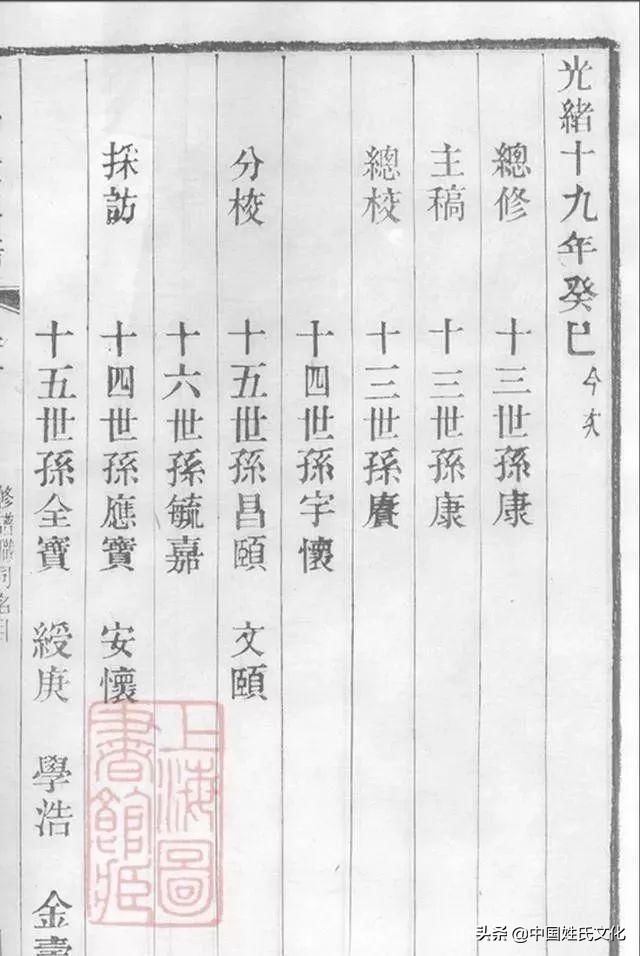 光緒十九年癸巳 今次
總修 十三世孫康
主稿 十三世孫康
總校 十三世孫賡
十四世孫宇懷
分校 十五世孫昌頤 文頤
十六世孫毓嘉
採訪 十四世孫應寶 安懷
十五世孫全寶 綬庚 學浩 金壽
修譜職司名目
上海圖書館藏
头条 @中国姓氏文化